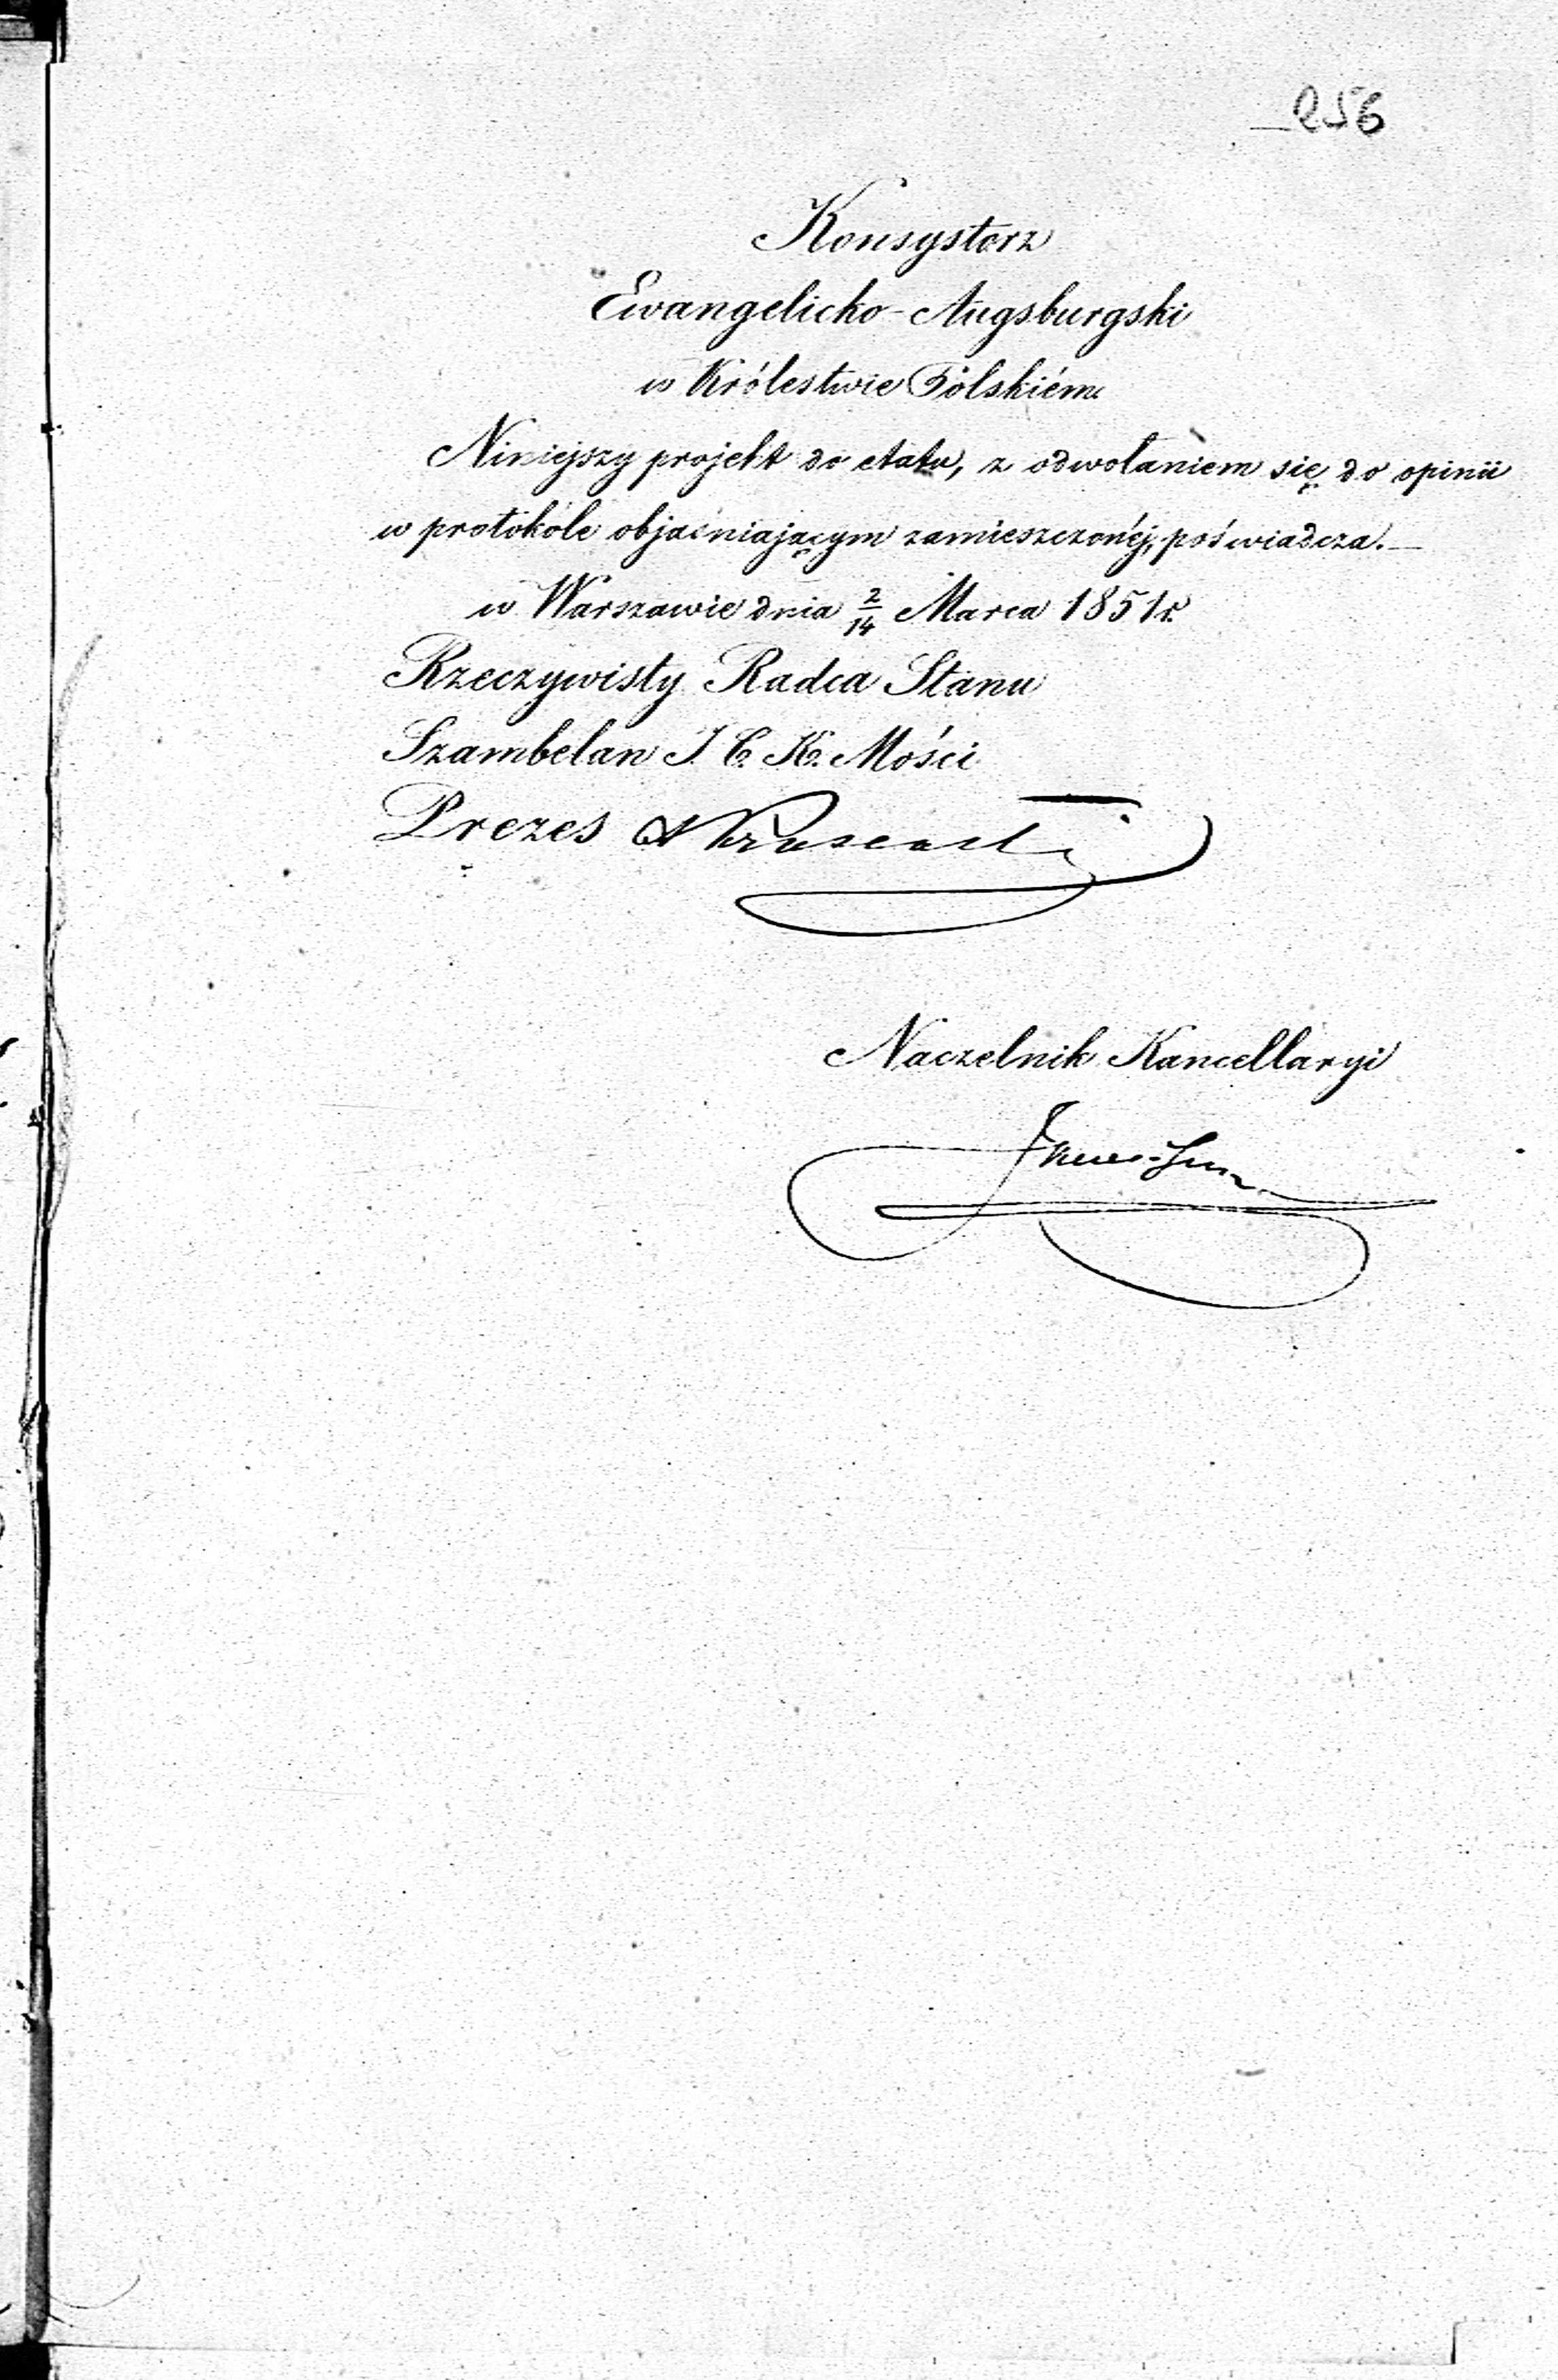 256
Konsystorz
Ewangelicko-Augsburgski
w Królestwie Polskiém
Niniejszy projekt do etatu, z odwołaniem się do opinii
w protokóle objaśniającym zamieszczonéj, poświadcza.—
w Warszawie dnia 2/14 Marca 1851 r.
Rzeczywisty Radca Stanu
Szambelan J. C. K. Mości
Prezes
Naczelnik Kancellaryi